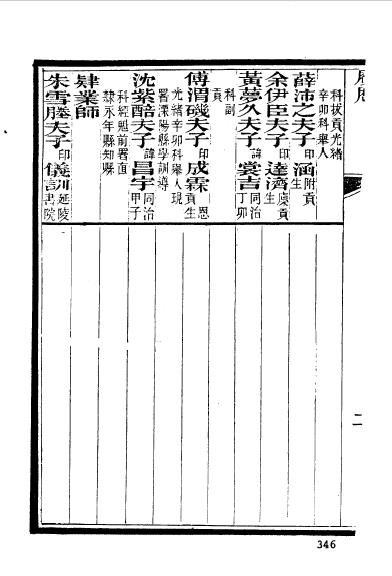 科拔貢光緒
辛卯科舉人
薛沛之夫子印涵附貢
生
余伊臣夫子印達濟貢
生
黃夢久夫子諱裳吉同治
丁卯
科副
貢
傅渭磯夫子印成霖恩
貢生
光緒辛卯科舉人現
署溧陽縣學訓導
沈紫醅夫子諱昌宇同治
甲子
科經魁前署直
隸永年縣知縣
肄業師
朱雪塍夫子印儀訓延陵
書院
二
346